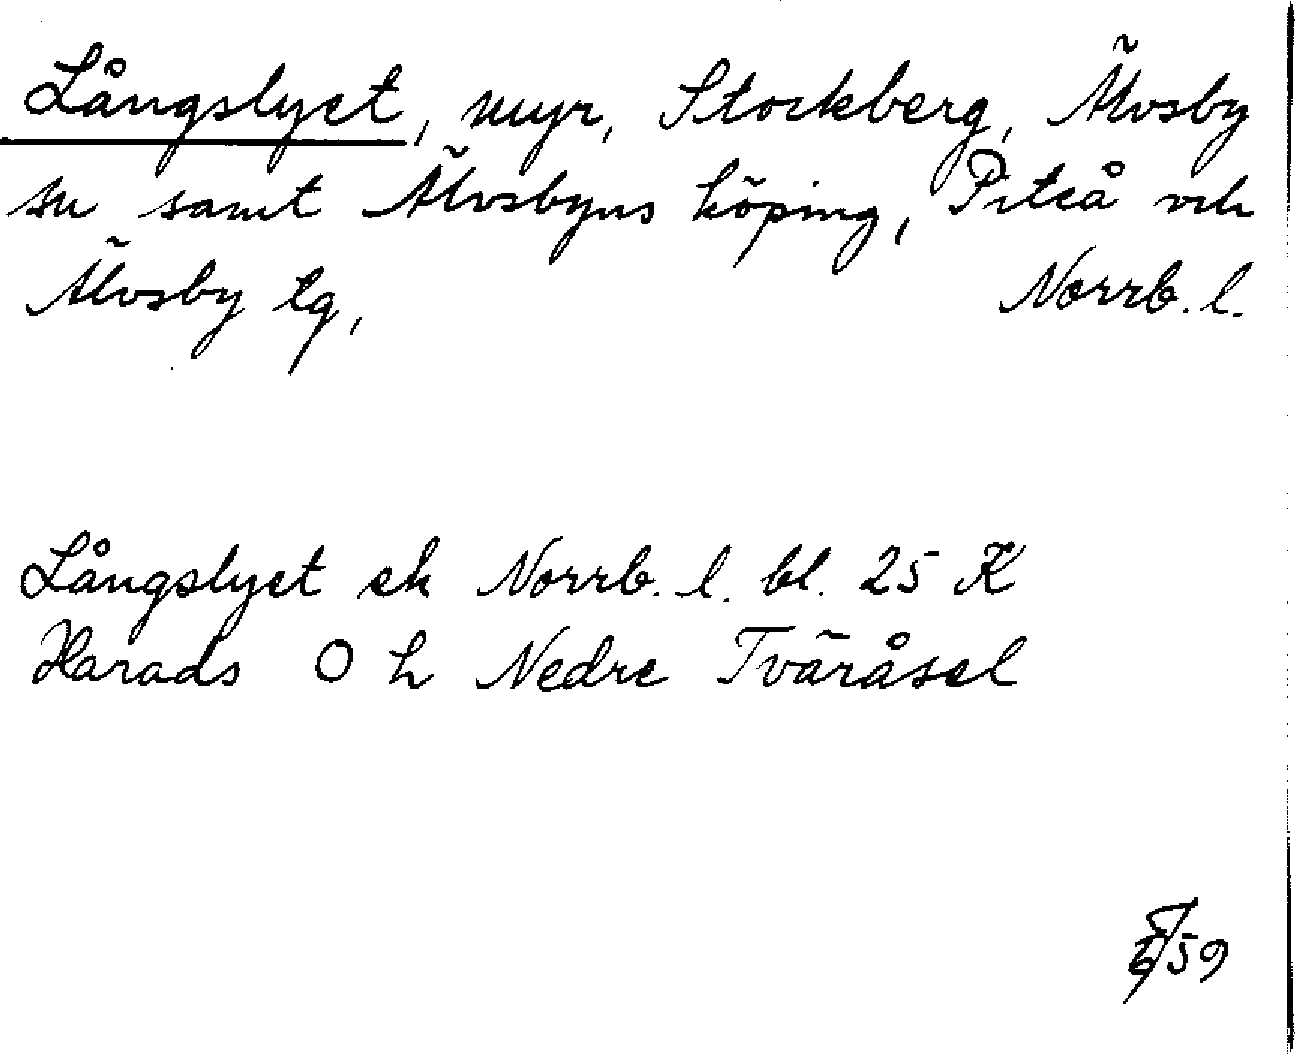 Långslyet, myr, Stockberg, Älvsby
sn samt Älvsbyns köping, Piteå och
Älvsby tg, Norrb. l.
Långslyet ek Norrb. l. bl. 25 K
Harads O h Nedre Tväråsel
59